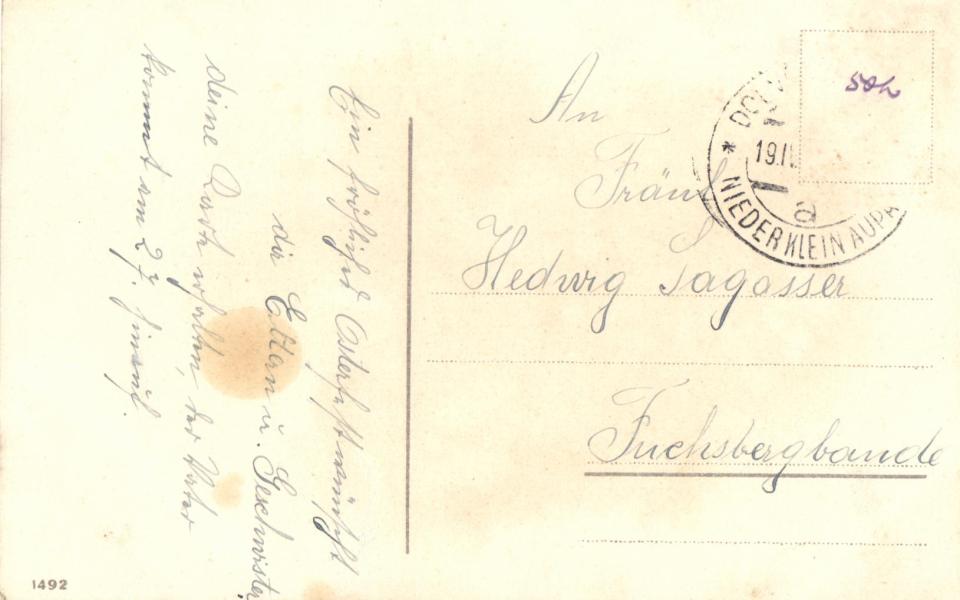 Ein fröhliches Osterfest wünscht
die Eltern u. Geschwister
deine Karte erhalten, der Vater
kommt am 27. hinauf.
An
Fräul
Hedwig Sagasser
Fuchsbergbaude
50h
DOL
19.IV
a
* NIEDER KLEIN AUPA
1492